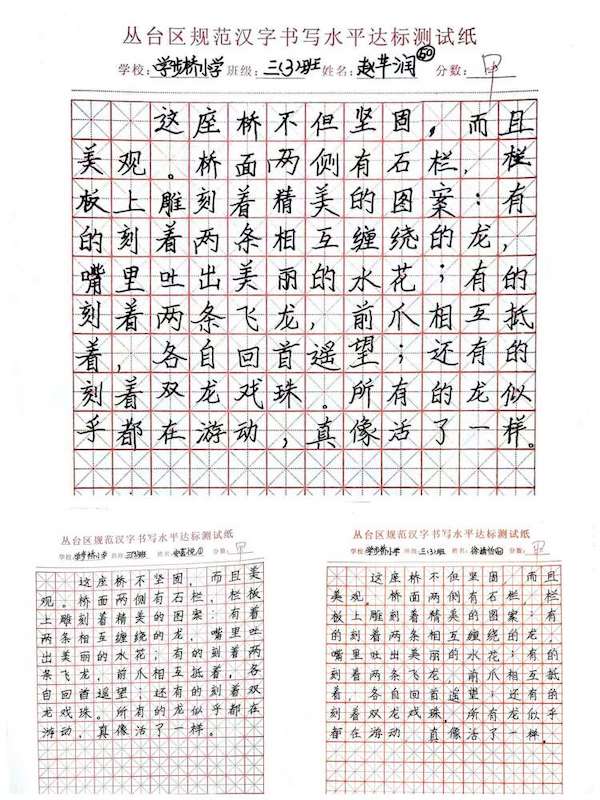 丛台区规范汉字书写水平达标测试纸
学校:学步桥小学 班级:三(3)班 姓名:赵芊润 50 分数:甲
这座桥不但坚固,而且
美观。桥面两侧有石栏,栏
板上雕刻着精美的图案:有
的刻着两条相互缠绕的龙,
嘴里吐出美丽的水花;有的
刻着两条飞龙,前爪相互抵
着,各自回首遥望;还有的
刻着双龙戏珠。所有的龙似
乎都在游动,真像活了一样。
丛台区规范汉字书写水平达标测试纸
学校:学步桥小学 班级:三(3)班 姓名: 分数:甲
这座桥不坚固,而且美
观。桥面两侧有石栏,栏板
上雕刻着精美的图案:有着
两条相互缠绕的龙,嘴里吐
出美丽的水花;有的刻着两
条飞龙,前爪相互抵着,各
自回首遥望;还有的刻着双
龙戏珠。所有的龙似乎都在
游动,真像活了一样。
丛台区规范汉字书写水平达标测试纸
学校:学步桥小学 班级:三(3)班 姓名: 分数:甲
这座桥不但坚固,而且
美观。桥面两侧有石栏,栏
板上雕刻着精美的图案:有
的刻着两条相互缠绕的龙,
嘴里吐出美丽的水花;有的
刻着两条飞龙,前爪相互抵
着,各自回首遥望;还有的
刻着双龙戏珠,所有龙似乎
都在游动 真像活了一样。